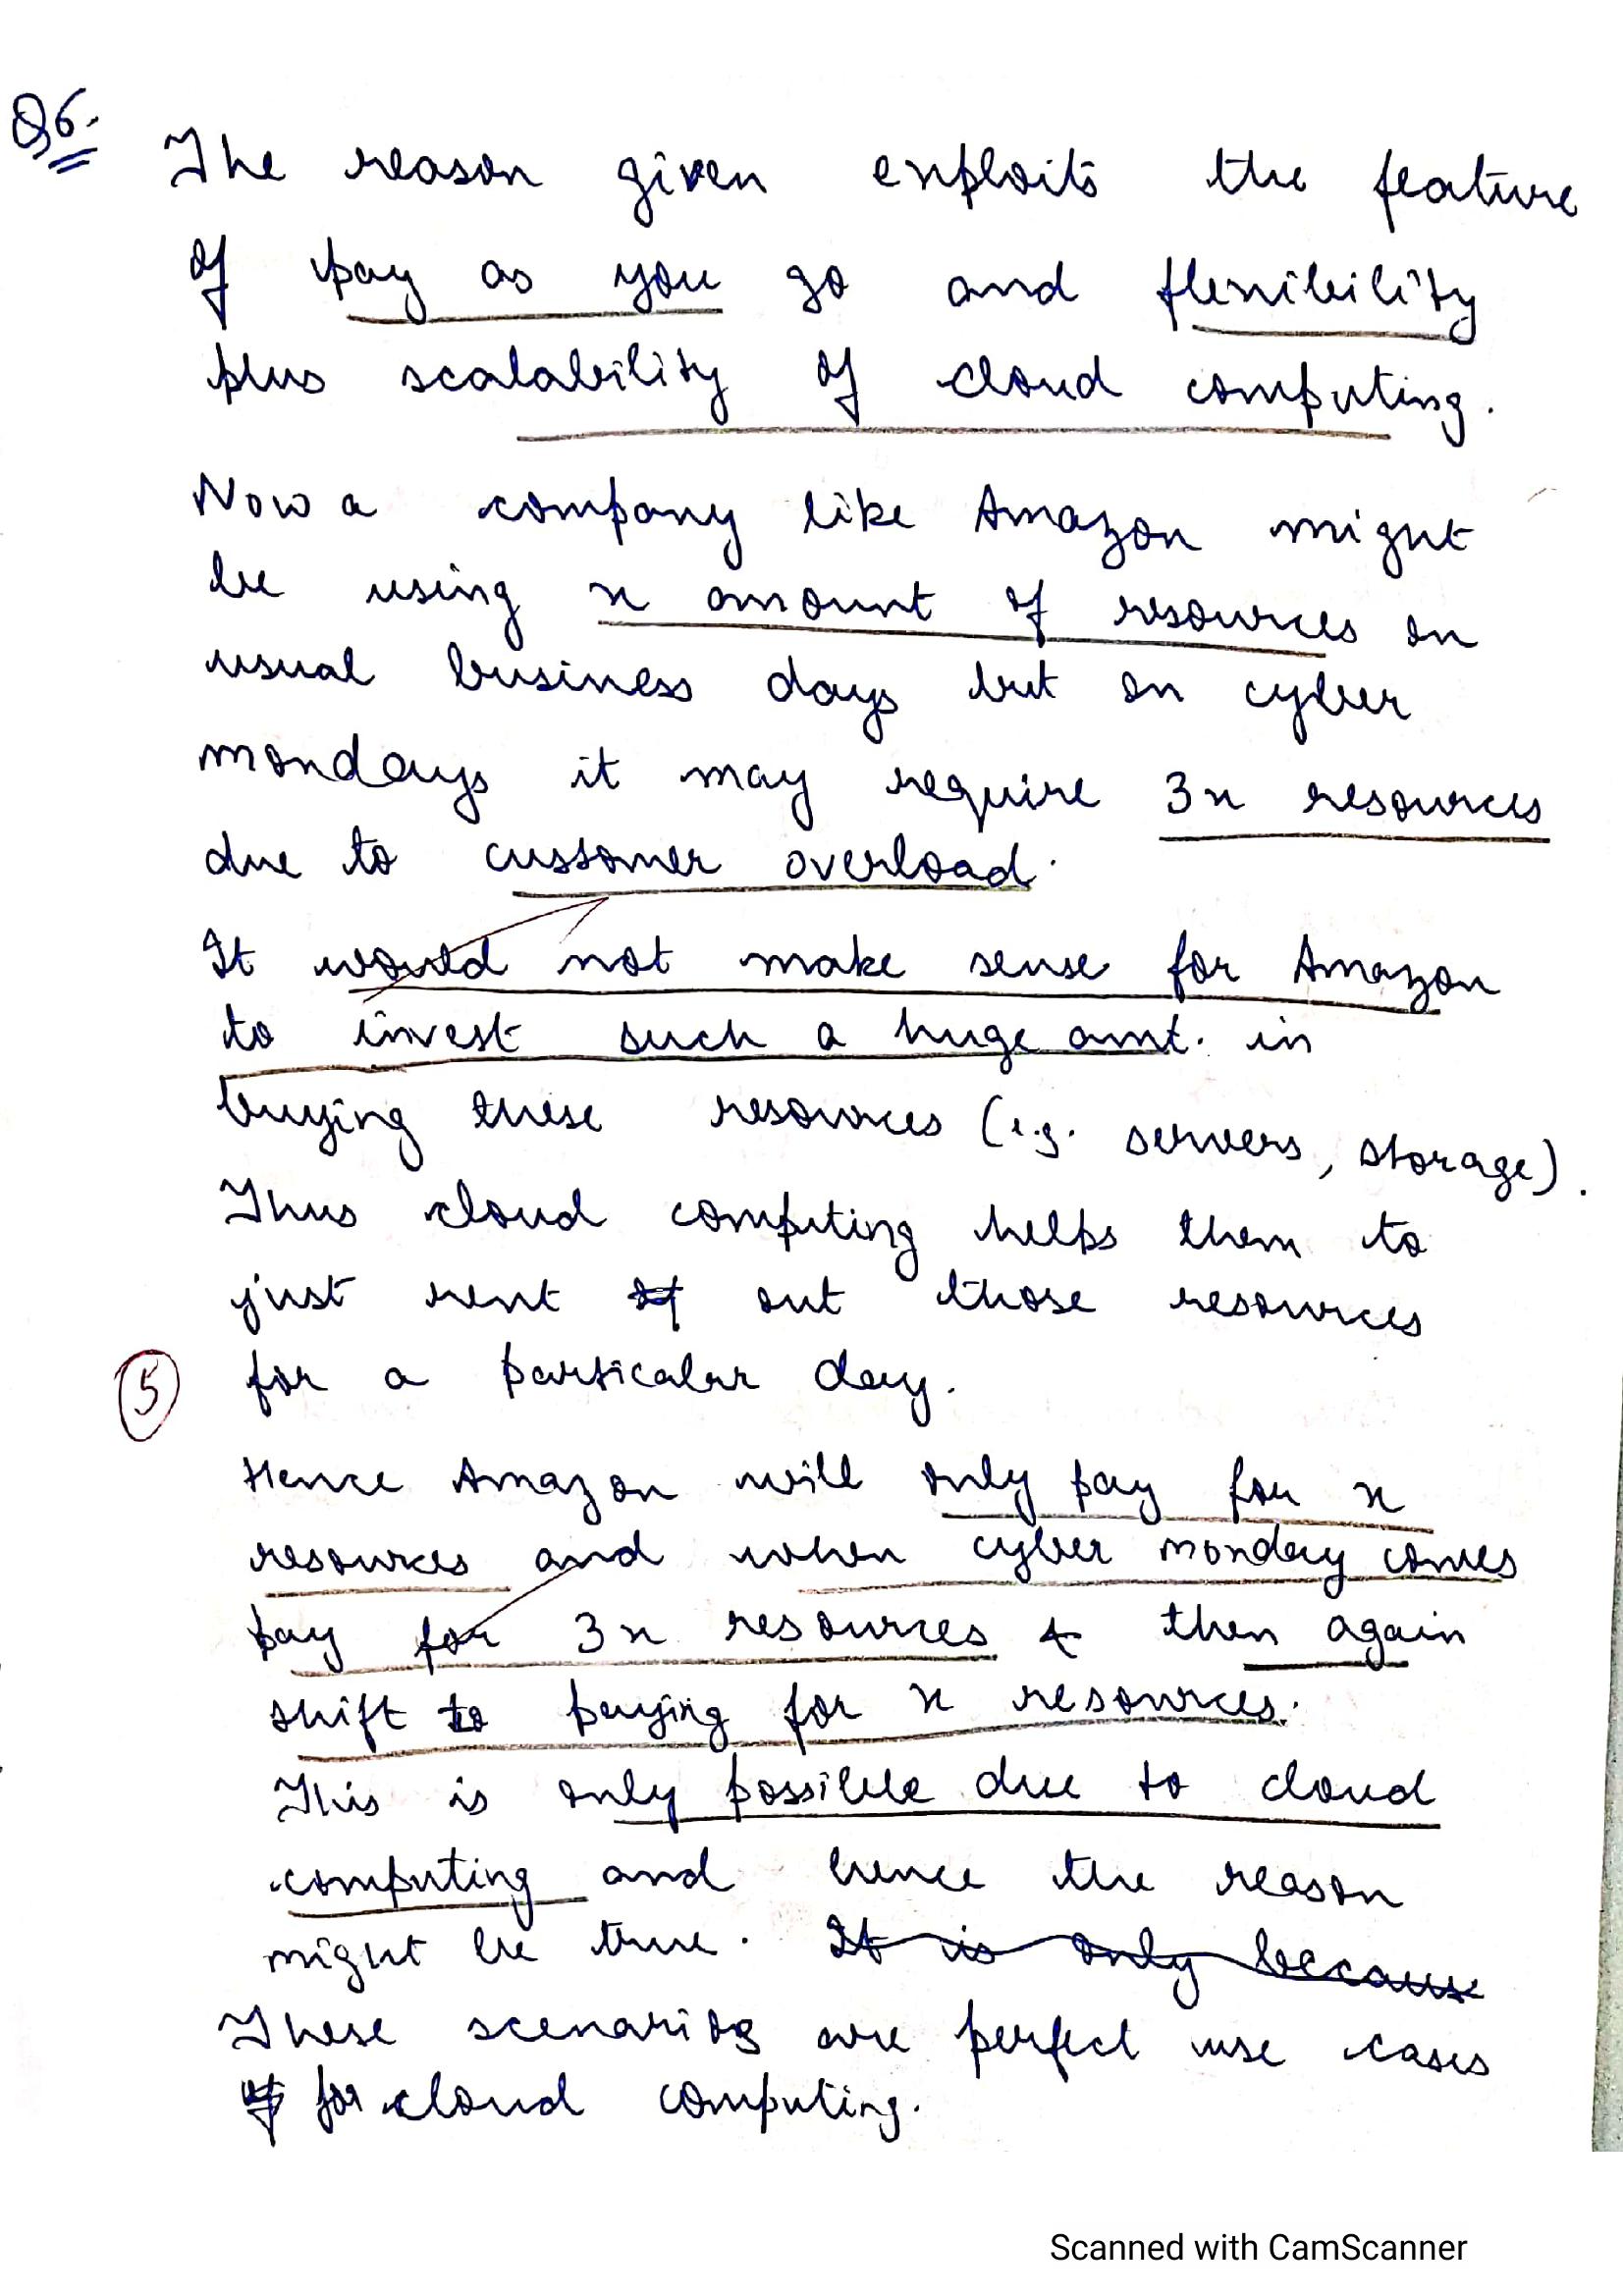 Q6.
The reason given exploits the feature
of pay as you go and flexibility
plus scalability of cloud computing.
Now a company like Amazon might
be using x amount of resources on
usual business days but on cyber
mondays it may require 3x resources
due to customer overload.
It would not make sense for Amazon
to invest such a huge amt. in
buying these resources (e.g. servers, storage).
Thus cloud computing helps them to
just rent out those resources
5
for a particular day.
Hence Amazon will only pay for x
resources and when cyber monday comes
pay for 3x resources & then again
shift to paying for x resources.
This is only possible due to cloud
computing and hence the reason
might be true. It is only because
These scenarios are perfect use cases
for cloud computing.
Scanned with CamScanner